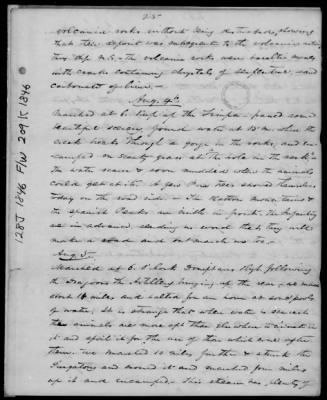 25
volcanic rocks without being disturbed, showing
that their deposit was subsequent to the volcanic action
this trap &c. the volcanic rocks were basaltic mostly
with cracks containing chrystals of and
carbonate of lime.
Aug. 4th.
Marched at 6 up the Timpa - passed some
beautiful scenery found water at 15 m. where the
creek breaks through a gorge in the rocks, and en-
camped on scanty grass at the hole in the rock"
the water scarce & soon muddied when the animals
could get at it. A few Pine trees showed themselves
today on the road side. The Raton mountains &
the Spanish Peaks are visible in front. the Infantry
are in advance, sending us word that they will
make a road and out march us too.
Aug. 5.
Marched at 6. o'clock Doniphans Regt following
the Dragoons the Artillery bringing up the rear,
about 18 miles and halted for an hour at some pools
of water; It is strange that when water is scarce
the animals are more apt than elsewhere to in
it and spoil it for the use of those which come after
them. We marched 10 miles further & struck the
Purgatory and crossed it and marched four miles
up it and encamped. This stream has plenty of
128J 1846 F/W 209 K 1846